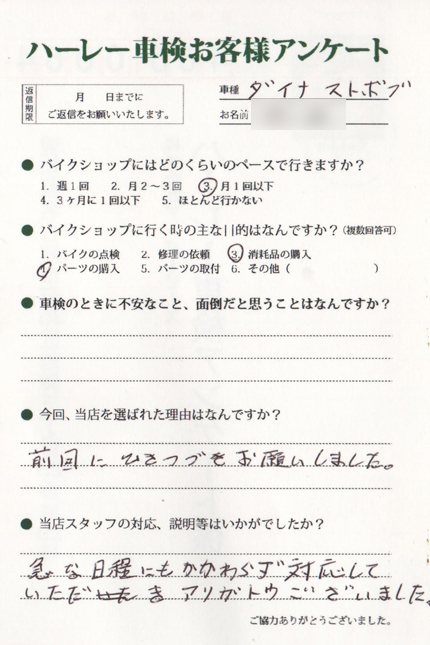 ハーレー車検お客様アンケート
返信期限
月　日までに
ご返信をお願いいたします。
車種 ダイナ ストボブ
お名前
● バイクショップにはどのくらいのペースで行きますか？
1. 週1回　2. 月2～3回　3. 月1回以下
4. 3ヶ月に1回以下　5. ほとんど行かない
● バイクショップに行く時の主な目的はなんですか？（複数回答可）
1. バイクの点検　2. 修理の依頼　3. 消耗品の購入
4. パーツの購入　5. パーツの取付　6. その他（　　　　　）
● 車検のときに不安なこと、面倒だと思うことはなんですか？
● 今回、当店を選ばれた理由はなんですか？
前回にひきつづきお願いしました。
● 当店スタッフの対応、説明等はいかがでしたか？
急な日程にもかかわらず対応して
いただき アリガトウございました。
ご協力ありがとうございました。